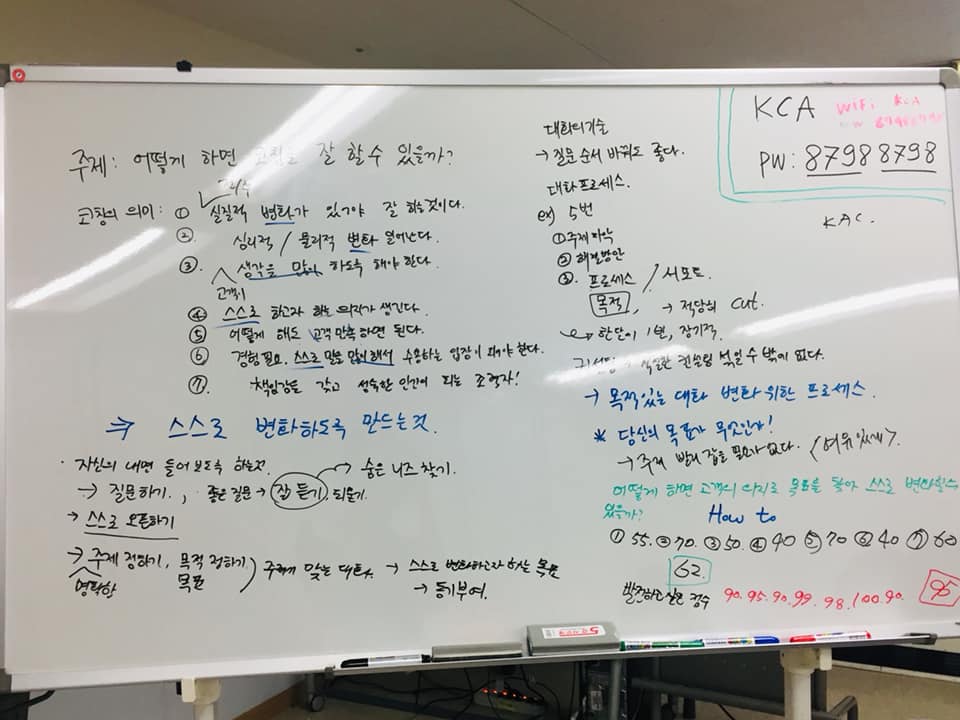 주제: 어떻게 하면 코칭을 잘 할 수 있을까?
코칭의 의미: ① 실질적 변화가 있어야 잘 하는 것이다.
② 심리적 / 물리적 변화 일어난다.
③ 생각을 많이 하도록 해야 한다.
고객이
④ 스스로 하고자 하는 의지가 생긴다.
⑤ 어떻게 해도 고객 만족하면 된다.
⑥ 경험 필요. 스스로 질문 많이 해서 수용하는 입장이 되어야 한다.
⑦ 책임감을 갖고 성숙한 인간이 되는 조력자!
⇒ 스스로 변화하도록 만드는 것.
· 자신의 내면 들어 보도록 하는것.
→ 질문하기., 좋은 질문 → 잘 듣기 되묻기.
→ 숨은 니즈 찾기.
→ 스스로 오픈하기
→ 주제 정하기, 목적 정하기
명확한 목표
주제에 맞는 대화. → 스스로 변화하고자 하는 목표
→ 동기부여.
대화의 기술
→ 질문 순서 바뀌도 좋다.
대화 프로세스.
ex) 5번
① 주제 파악
② 해결방안
③ 프로세스 / 서포트.
목적, → 적당히 cut.
한달이 1번, 장기적
컨설팅 수 밖이 없다.
→ 목적있는 대화 변화 위한 프로세스.
* 당신의 목표가 무엇인가!
→ 주제 빨리 잡을 필요가 없다. <여유있게>.
어떻게 하면 고객의 의지로 목표를 찾아 스스로 변화할수
있을까? How to
① 55. ② 70. ③ 50. ④ 40 ⑤ 70 ⑥ 40 ⑦ 60
62.
발전하고 싶은 점수 90. 95. 90. 99. 98. 100. 90. 95
KCA wifi KCA
PW: 8798 8798
KAC.